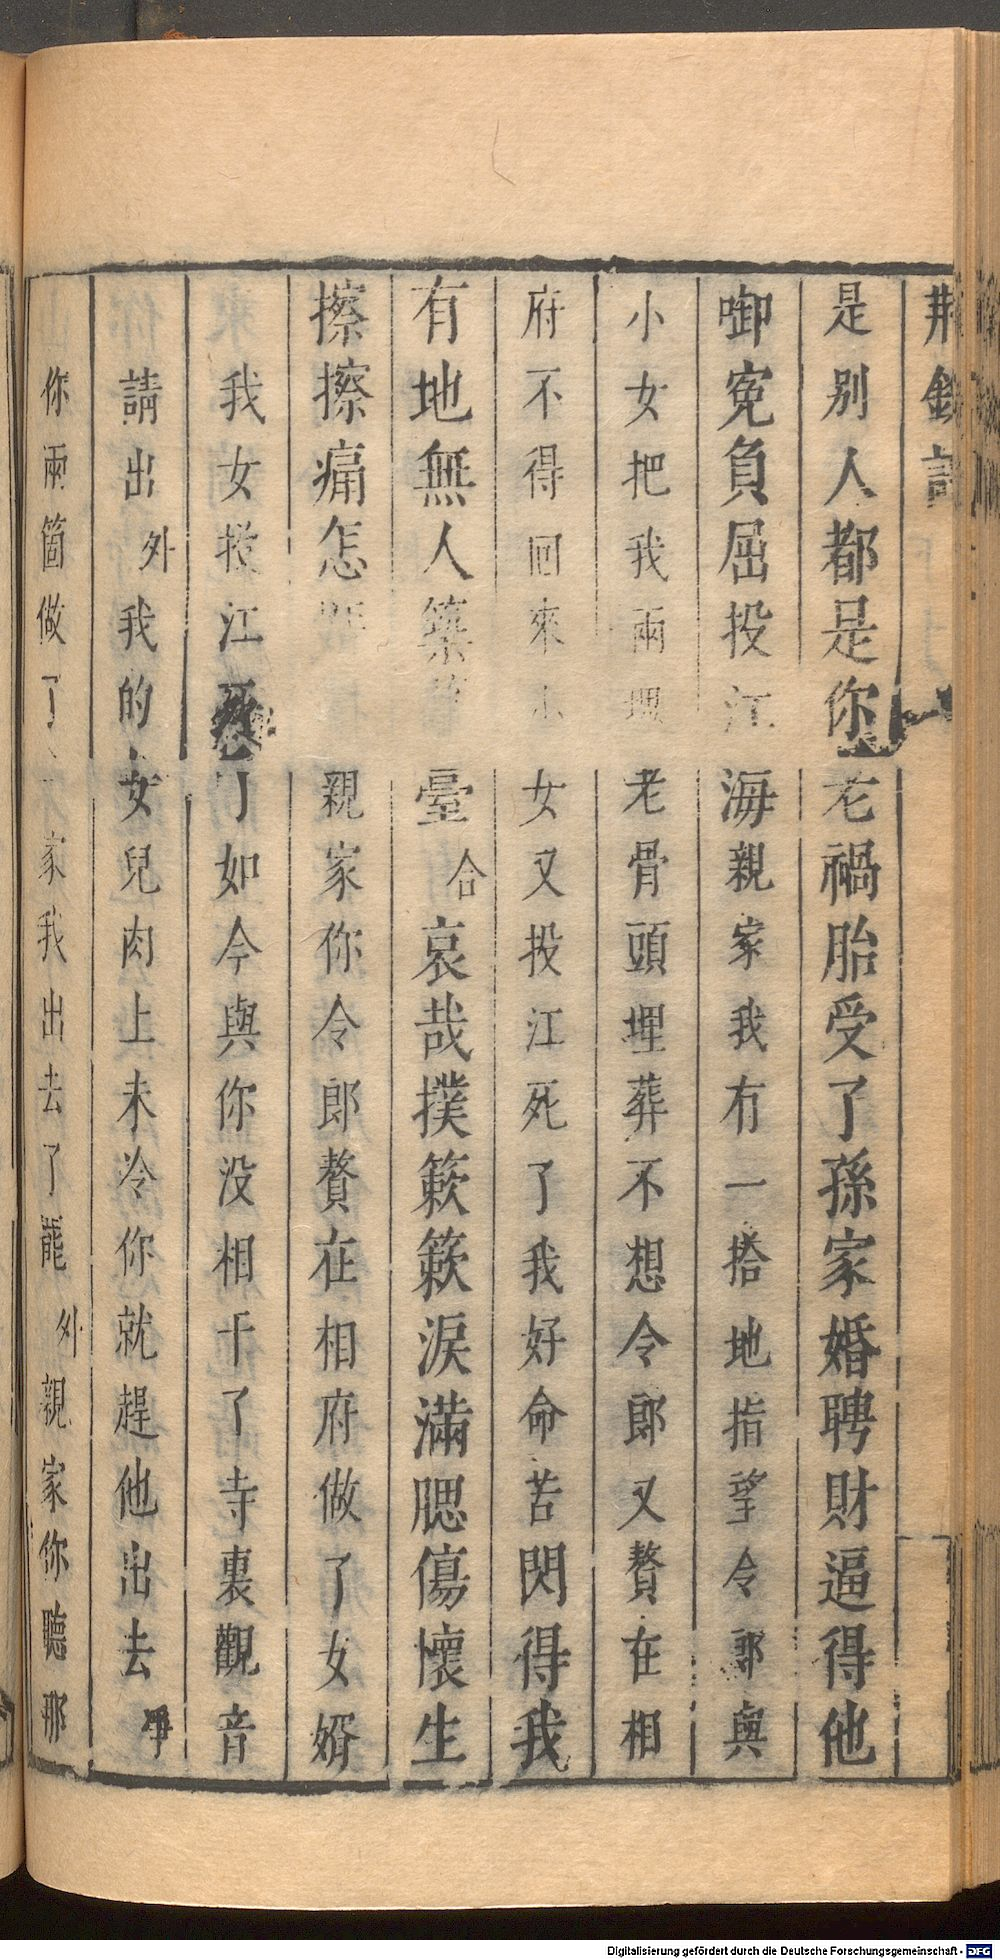 荆釵記
是别人都是你老禍胎受了孫家婚聘財逼得他
啣寃負屈投江海親家我有一搭地指望令郎與
小女把我兩埋老骨頭埋葬不想令郎又贅在相
府不得回來小女又投江死了我好命苦閃得我
有地無人築臺合哀哉撲簌簌淚滿腮傷懷生
擦擦痛怎親家你令郎贅在相府做了女婿
我女投江死了如今與你没相干了寺裏觀音
請出外我的女兒肉上未冷你就趕他出去淨
你兩箇做了家我出去了罷外親家你聽那
Digitalisierung gefördert durch die Deutsche Forschungsgemeinschaft - DFG